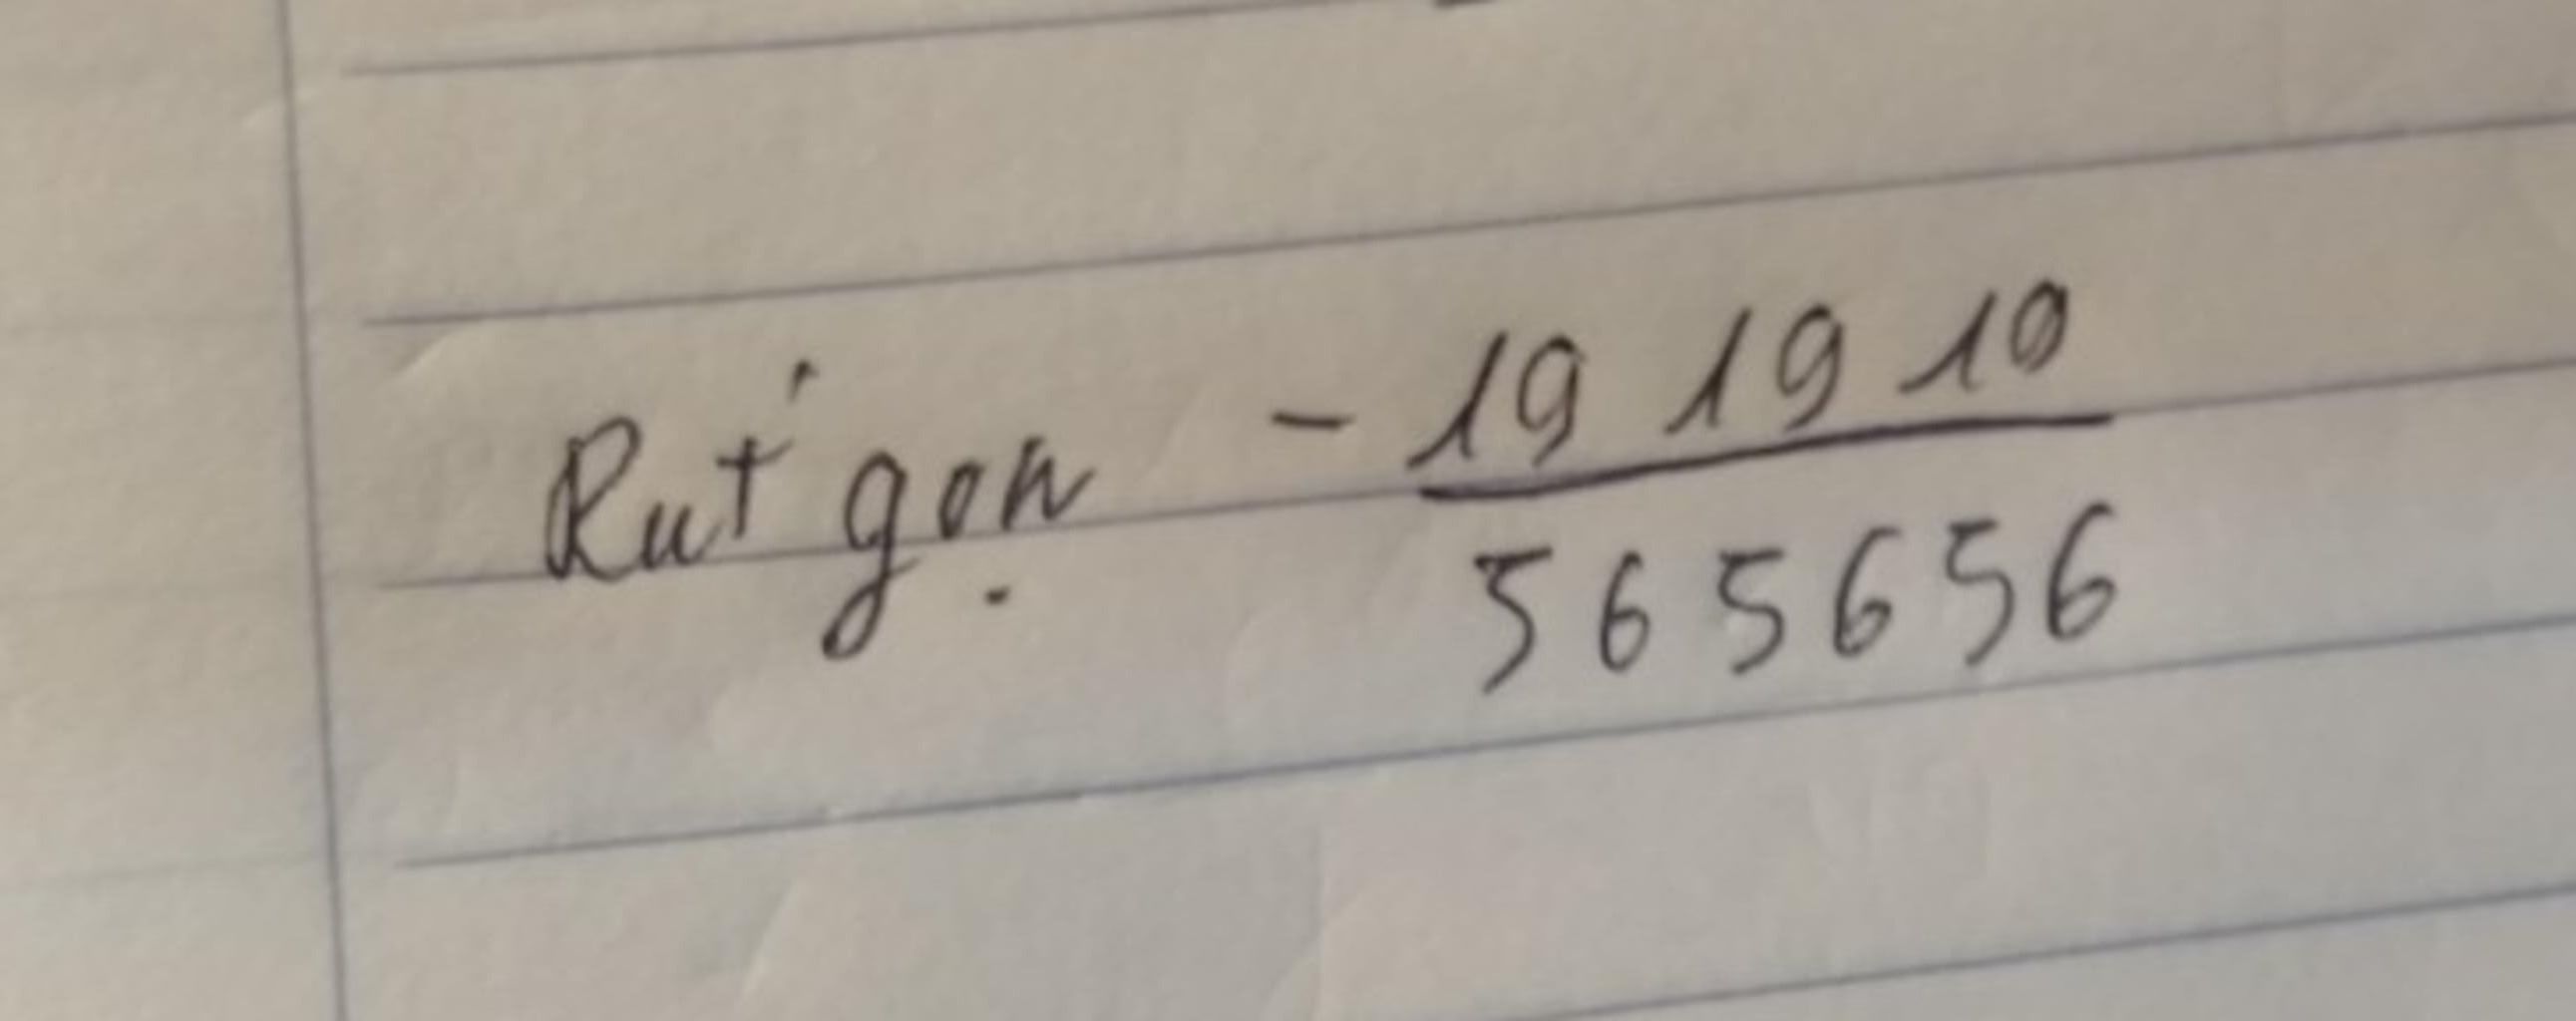 Rút gọn - 19 19 19
565656